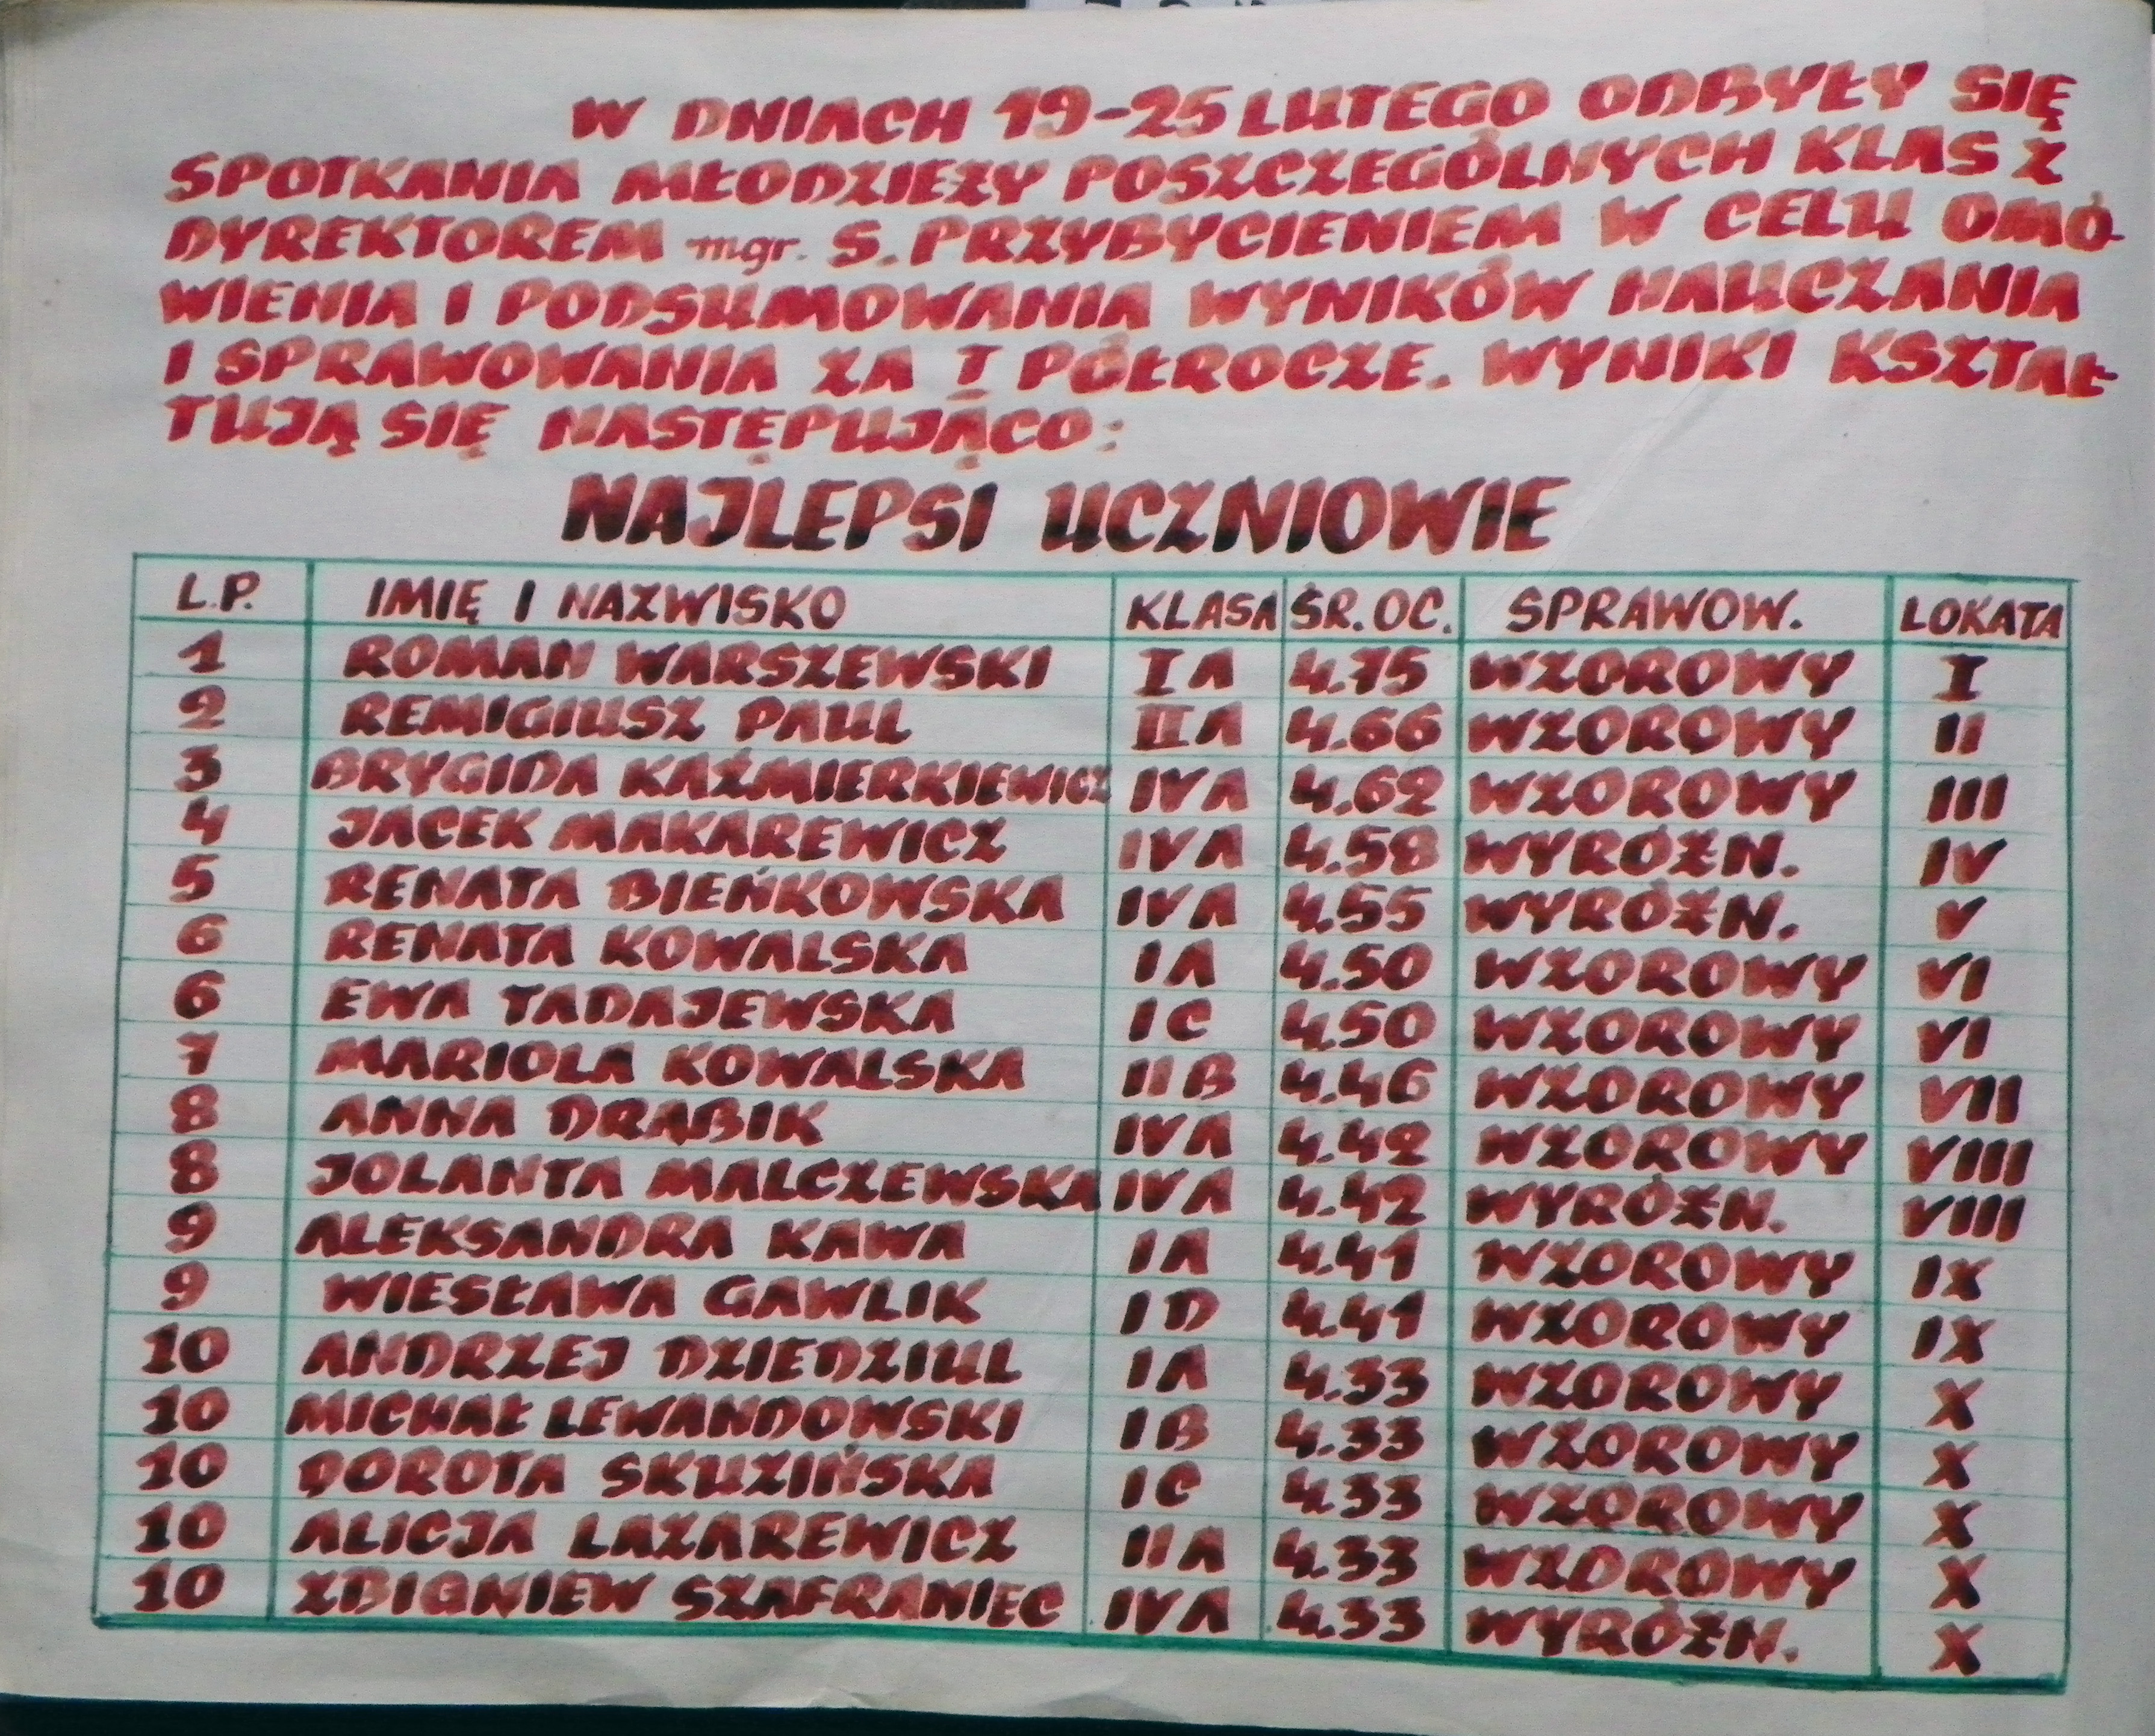 W DNIACH 19-25 LUTEGO ODBYŁY SIĘ
SPOTKANIA MŁODZIEŻY POSZCZEGÓLNYCH KLAS Z
DYREKTOREM mgr. S. PRZYBYCIENIEM W CELU OMÓ-
WIENIA I PODSUMOWANIA WYNIKÓW NAUCZANIA
I SPRAWOWANIA ZA I PÓŁROCZE. WYNIKI KSZTAŁ-
TUJĄ SIĘ NASTĘPUJĄCO:
NAJLEPSI UCZNIOWIE
L.P. IMIĘ I NAZWISKO KLASA ŚR. OC. SPRAWOW. LOKATA
1 ROMAN WARSZEWSKI IA 4.75 WZOROWY I
2 REMIGIUSZ PAUL IIA 4.66 WZOROWY II
3 BRYGIDA KAŹMIERKIEWICZ IVA 4.62 WZOROWY III
4 JACEK MAKAREWICZ IVA 4.58 WYRÓŻN. IV
5 RENATA BIEŃKOWSKA IVA 4.55 WYRÓŻN. V
6 RENATA KOWALSKA IA 4.50 WZOROWY VI
6 EWA TADAJEWSKA IC 4.50 WZOROWY VI
7 MARIOLA KOWALSKA IIB 4.46 WZOROWY VII
8 ANNA DRĄBIK IVA 4.42 WZOROWY VIII
8 JOLANTA MALCZEWSKA IVA 4.42 WYRÓŻN. VIII
9 ALEKSANDRA KAWA IA 4.41 WZOROWY IX
9 WIESŁAWA GAWLIK ID 4.41 WZOROWY IX
10 ANDRZEJ DZIEDZIUL IA 4.33 WZOROWY X
10 MICHAŁ LEWANDOWSKI IB 4.33 WZOROWY X
10 DOROTA SKUZIŃSKA IC 4.33 WZOROWY X
10 ALICJA LAZAREWICZ IIA 4.33 WZOROWY X
10 ZBIGNIEW SZAFRANIEC IVA 4.33 WYRÓŻN. X